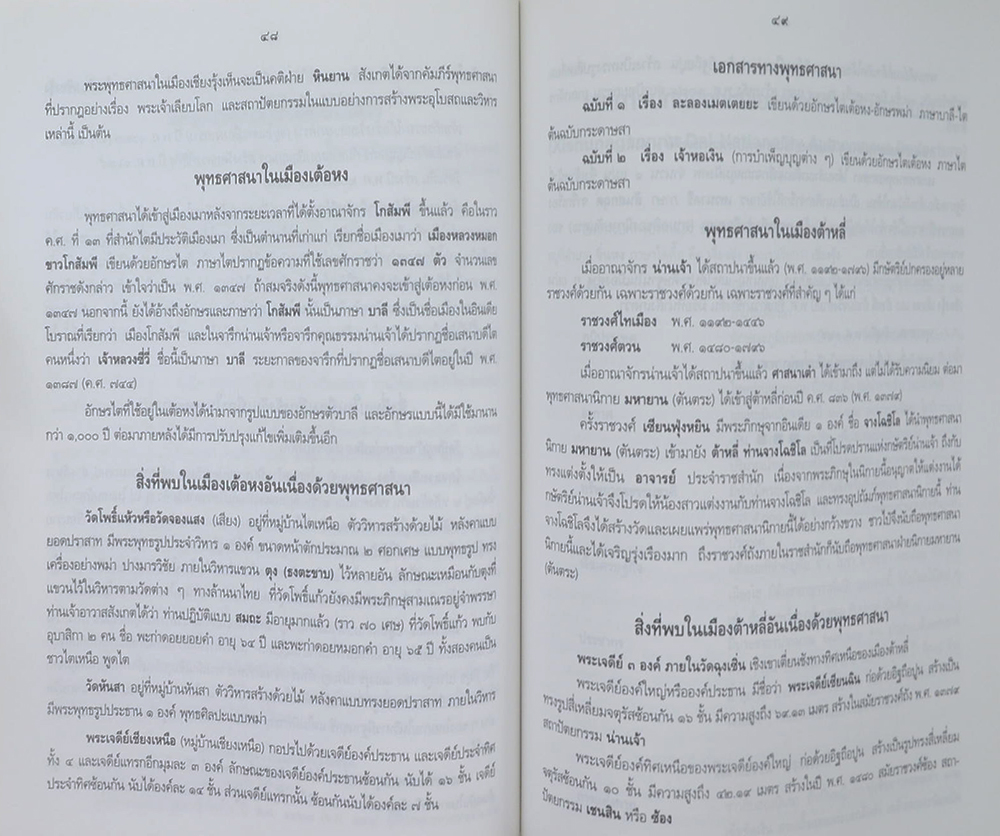 ๔๘
พระพุทธศาสนาในเมืองเชียงรุ้งเห็นจะเป็นคติฝ่าย หินยาน สังเกตได้จากคัมภีร์พุทธศาสนา
ที่ปรากฏอย่างเรื่อง พระเจ้าเลียบโลก และสถาปัตยกรรมในแบบอย่างการสร้างพระอุโบสถและวิหาร
เหล่านี้ เป็นต้น
พุทธศาสนาในเมืองเต้อหง
พุทธศาสนาได้เข้าสู่เมืองเมาหลังจากระยะเวลาที่ได้ตั้งอาณาจักร โกสัมพี ขึ้นแล้ว คือในราว
ค.ศ. ที่ ๑๓ ที่สำนักไตมีประวัติเมืองเมา ซึ่งเป็นตำนานที่เก่าแก่ เรียกชื่อเมืองเมาว่า เมืองหลวงหมอก
ขาวโกสัมพี เขียนด้วยอักษรไต ภาษาไตปรากฏข้อความที่ใช้เลขศักราชว่า ๑๓๔๗ ตัว จำนวนเลข
ศักราชดังกล่าว เข้าใจว่าเป็น พ.ศ. ๑๓๔๗ ถ้าสมจริงดังนี้พุทธศาสนาคงจะเข้าสู่เต้อหงก่อน พ.ศ.
๑๓๔๗ นอกจากนี้ ยังได้อ้างถึงอักษรและภาษาว่า โกสัมพี นั้นเป็นภาษา บาลี ซึ่งเป็นชื่อเมืองในอินเดีย
โบราณที่เรียกว่า เมืองโกสัมพี และในจารึกน่านเจ้าหรือจารึกคุณธรรมน่านเจ้าได้ปรากฏชื่อเสนาบดีไต
คนหนึ่งว่า เจ้าหลวงซีวี่ ชื่อนี้เป็นภาษา บาลี ระยะกาลของจารึกที่ปรากฏชื่อเสนาบดีไตอยู่ในปี พ.ศ.
๑๓๘๗ (ค.ศ. ๗๔๔)
อักษรไตที่ใช้อยู่ในเต้อหงได้นำมาจากรูปแบบของอักษรตัวบาลี และอักษรแบบนี้ได้มีใช้มานาน
กว่า ๑,๐๐๐ ปี ต่อมาภายหลังได้มีการปรับปรุงแก้ไขเพิ่มเติมขึ้นอีก
สิ่งที่พบในเมืองเต้อหงอันเนื่องด้วยพุทธศาสนา
วัดโพธิ์แห้วหรือวัดจองแสง (เสียง) อยู่ที่หมู่บ้านไตเหนือ ตัววิหารสร้างด้วยไม้ หลังคาแบบ
ยอดปราสาท มีพระพุทธรูปประจำวิหาร ๑ องค์ ขนาดหน้าตักประมาณ ๒ ศอกเศษ แบบพุทธรูป ทรง
เครื่องอย่างพม่า ปางมารวิชัย ภายในวิหารแขวน ตุง (ธงตะขาบ) ไว้หลายอัน ลักษณะเหมือนกับตุงที่
แขวนไว้ในวิหารตามวัดต่าง ๆ ทางล้านนาไทย ที่วัดโพธิ์แก้วยังคงมีพระภิกษุสามเณรอยู่จำพรรษา
ท่านเจ้าอาวาสสังเกตได้ว่า ท่านปฏิบัติแบบ สมถะ มีอายุมากแล้ว (ราว ๗๐ เศษ) ที่วัดโพธิ์แก้ว พบกับ
อุบาสิกา ๒ คน ชื่อ พะก่าดอยยอยคำ อายุ ๖๔ ปี และพะก่าดอยหมอกคำ อายุ ๖๕ ปี ทั้งสองคนเป็น
ชาวไตเหนือ พูดไต
วัดหันสา อยู่ที่หมู่บ้านหันสา ตัววิหารสร้างด้วยไม้ หลังคาแบบทรงยอดปราสาท ภายในวิหาร
มีพระพุทธรูปประธาน ๑ องค์ พุทธศิลปะแบบพม่า
พระเจดีย์เชียงเหนือ (หมู่บ้านเชียงเหนือ) กอปรไปด้วยเจดีย์องค์ประธาน และเจดีย์ประจำทิศ
ทั้ง ๔ และเจดีย์แทรกอีกมุมละ ๓ องค์ ลักษณะของเจดีย์องค์ประธานซ้อนกัน นับได้ ๑๖ ชั้น เจดีย์
ประจำทิศซ้อนกัน นับได้องค์ละ ๑๔ ชั้น ส่วนเจดีย์แทรกนั้น ซ้อนกันนับได้องค์ละ ๗ ชั้น
๔๙
เอกสารทางพุทธศาสนา
ฉบับที่ ๑ เรื่อง ละลองเมตเตยยะ เขียนด้วยอักษรไตเต้อหง-อักษรพม่า ภาษาบาลี-ไต
ต้นฉบับกระดาษสา
ฉบับที่ ๒ เรื่อง เจ้าหอเงิน (การบำเพ็ญบุญต่าง ๆ) เขียนด้วยอักษรไตเต้อหง ภาษาไต
ต้นฉบับกระดาษสา
พุทธศาสนาในเมืองต้าหลี่
เมื่ออาณาจักร น่านเจ้า ได้สถาปนาขึ้นแล้ว (พ.ศ. ๑๑๙๒-๑๗๙๖) มีกษัตริย์ปกครองอยู่หลาย
ราชวงศ์ด้วยกัน เฉพาะราชวงศ์ด้วยกัน เฉพาะราชวงศ์ที่สำคัญ ๆ ได้แก่
ราชวงศ์ไทเมือง พ.ศ. ๑๑๙๒-๑๔๔๖
ราชวงศ์ตวน พ.ศ. ๑๔๘๐-๑๗๙๖
เมื่ออาณาจักรน่านเจ้าได้สถาปนาขึ้นแล้ว ศาสนาเต๋า ได้เข้ามาถึง แต่ไม่ได้รับความนิยม ต่อมา
พุทธศาสนานิกาย มหายาน (ตันตระ) ได้เข้าสู่ต้าหลี่ก่อนปี ค.ศ. ๘๓๖ (พ.ศ. ๑๓๗๙)
ครั้งราชวงศ์ เซียนฟุ่งหยิน มีพระภิกษุจากอินเดีย ๑ องค์ ชื่อ จางโฉชิโล ได้นำพุทธศาสนา
นิกาย มหายาน (ตันตระ) เข้ามายัง ต้าหลี่ ท่านจางโฉชิโล เป็นที่โปรดปรานแห่งกษัตริย์น่านเจ้า ถึงกับ
ทรงแต่งตั้งให้เป็น อาจารย์ ประจำราชสำนัก เนื่องจากพระภิกษุในนิกายนี้อนุญาตให้แต่งงานได้
กษัตริย์น่านเจ้าจึงโปรดให้น้องสาวแต่งงานกับท่านจางโฉชิโล และทรงอุปถัมภ์พุทธศาสนานิกายนี้ ท่าน
จางโฉชิโลจึงได้สร้างวัดและเผยแพร่พุทธศาสนานิกายนี้ได้อย่างกว้างขวาง ชาวไป๋จึงนับถือพุทธศาสนา
นิกายนี้และได้เจริญรุ่งเรืองมาก ถึงราชวงศ์ถังภายในราชสำนักก็นับถือพุทธศาสนาฝ่ายนิกายมหายาน
(ตันตระ)
สิ่งที่พบในเมืองต้าหลี่อันเนื่องด้วยพุทธศาสนา
พระเจดีย์ ๓ องค์ ภายในวัดฉุงเซิ่น เชิงเขาเตี่ยนชังทางทิศเหนือของเมืองต้าหลี่
พระเจดีย์องค์ใหญ่หรือองค์ประธาน มีชื่อว่า พระเจดีย์เซียนฉิน ก่อด้วยอิฐถือปูน สร้างเป็น
ทรงรูปสี่เหลี่ยมจตุรัสซ้อนกัน ๑๖ ชั้น มีความสูงถึง ๖๙.๑๓ เมตร สร้างในสมัยราชวงศ์ถัง พ.ศ. ๑๓๗๙
สถาปัตยกรรม น่านเจ้า
พระเจดีย์องค์ทิศเหนือของพระเจดีย์องค์ใหญ่ ก่อด้วยอิฐถือปูน สร้างเป็นรูปทรงสี่เหลี่ยม
จตุรัสซ้อนกัน ๑๐ ชั้น มีความสูงถึง ๔๒.๑๙ เมตร สร้างในปี พ.ศ. ๑๔๘๐ สมัยราชวงศ์ซ้อง สถา-
ปัตยกรรม เซนสิน หรือ ซ้อง